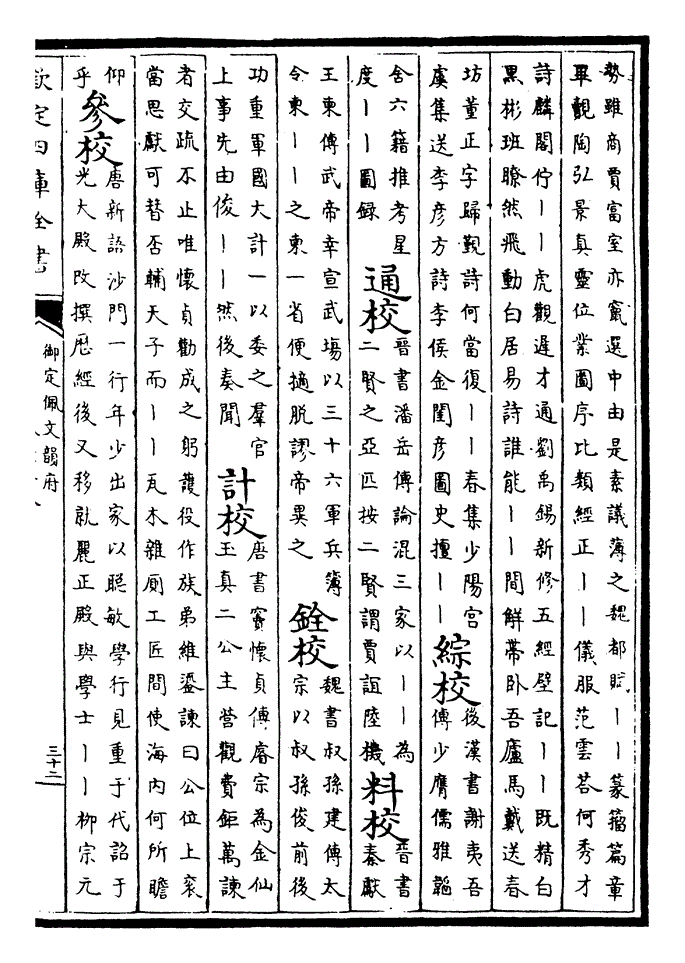 勢雖商賈富室亦竄選中由是素議薄之魏都賦丨丨篆籀篇章
畢覿陶弘景真靈位業圖序比類經正丨丨儀服范雲荅何秀才
詩麟閣佇丨丨虎觀遲才通劉禹錫新修五經壁記丨丨既精白
黑彬班瞭然飛動白居易詩誰能丨丨間解帶卧吾廬馬戴送春
坊董正字歸覲詩何當復丨丨春集少陽宮
虞集送李彥方詩李侯金閨彥圖史擅丨丨
綜校
後漢書謝夷吾
傳少膺儒雅韜
含六籍推考星
度丨丨圖錄
通校
晉書潘岳傳論混三家以丨丨為
二賢之亞匹按二賢謂賈誼陸機
料校
晉書
秦獻
王柬傳武帝幸宣武塲以三十六軍兵簿
令柬丨丨之柬一省便擿脫謬帝異之
銓校
魏書叔孫建傳太
宗以叔孫俊前後
功重軍國大計一以委之羣官
上事先由俊丨丨然後奏聞
計校
唐書竇懷貞傳睿宗為金仙
玉真二公主營觀費鉅萬諫
者交疏不止唯懷貞勸成之躬護役作族弟維鍙諫曰公位上衮
當思獻可替否輔天子而丨丨瓦木雜厠工匠間使海内何所瞻
仰
乎
參校
唐新語沙門一行年少出家以聰敏學行見重于代詔于
光大殿改撰厯經後又移就麗正殿與學士丨丨柳宗元
欽定四庫全書
御定佩文韻府
三十二